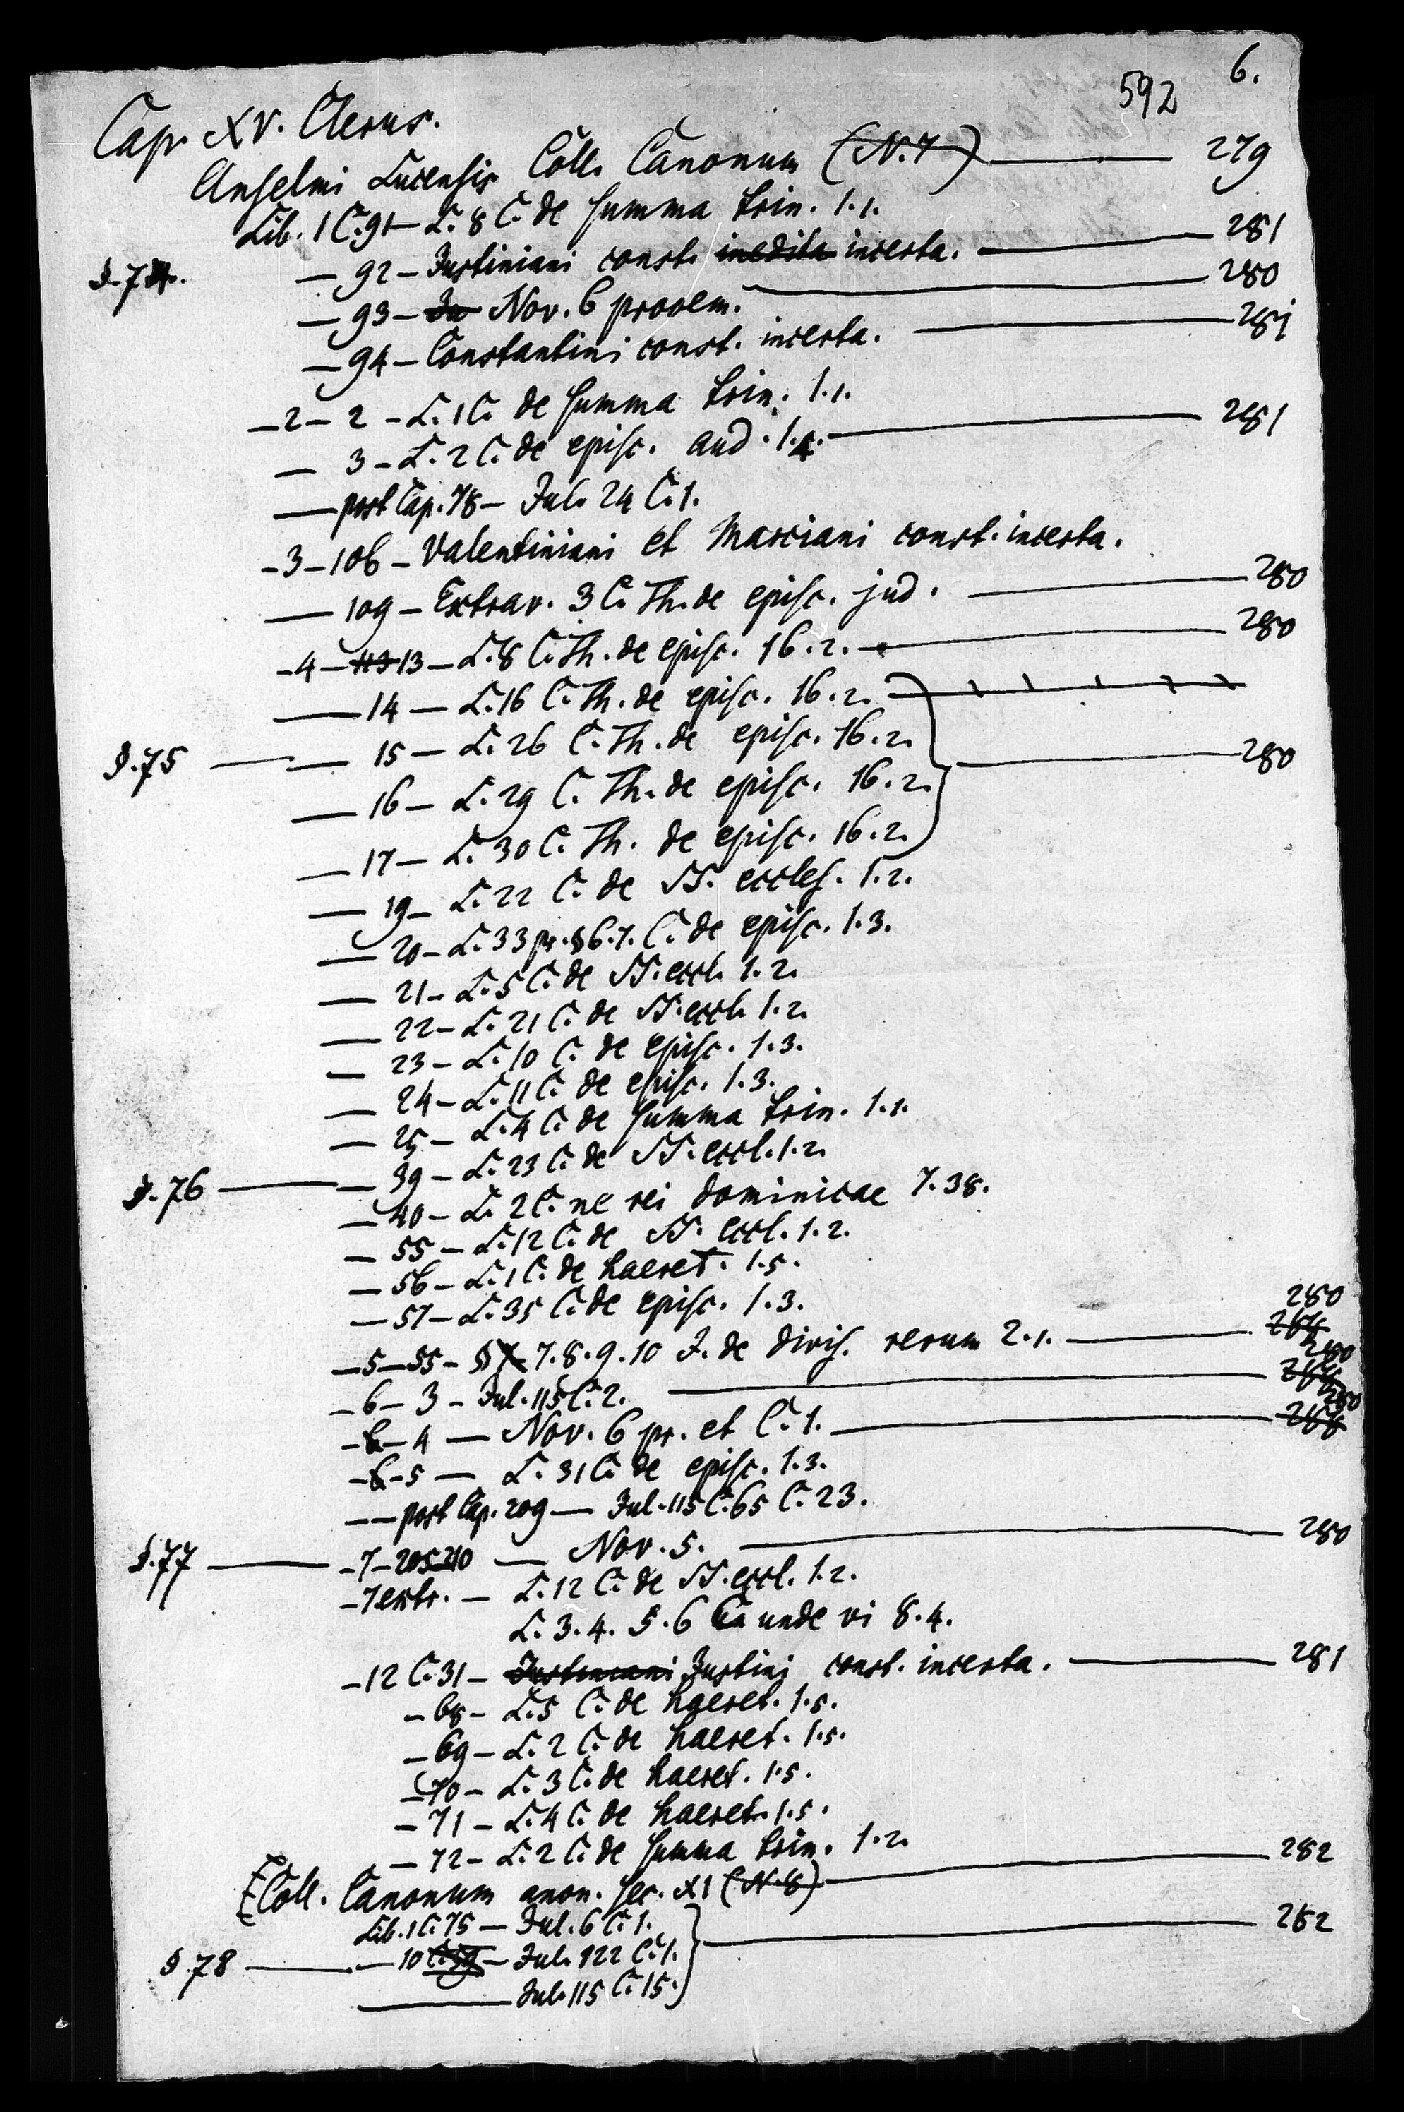 592 6.
Cap. XV. Clerus.
Anselmi Lucensis Coll. Canonum (N.7) — 279
Lib. 1 C. 91 — L. 8 C. de summa trin. 1.1.
S. 74. — 92 — Justiniani const. inedita incerta. — 281
— 93 — Nov. 6 prooem. — 280
— 94 — Constantini const. incerta. — 281
— 2 — 2 — L. 1 C. de summa trin. 1.1.
— 3 — L. 2 C. de episc. aud. 1.4. — 281
— post Cap. 78 — Jul. 24 C. 1.
— 3 — 106 — Valentiniani et Marciani const. incerta.
— 109 — Extrav. 3 C. Th. de episc. jud. — 280
— 4 — 113 13 — L. 8 C. Th. de episc. 16.2. — 280
— 14 — L. 16 C. Th. de episc. 16.2.
S. 75 — 15 — L. 26 C. Th. de episc. 16.2. — 280
— 16 — L. 29 C. Th. de episc. 16.2.
— 17 — L. 30 C. Th. de episc. 16.2.
— 19 — L. 22 C. de SS. eccles. 1.2.
— 20 — L. 33 pr. § 6.7. C. de episc. 1.3.
— 21 — L. 5 C. de SS. eccl. 1.2.
— 22 — L. 21 C. de SS. eccl. 1.2.
— 23 — L. 10 C. de episc. 1.3.
— 24 — L. 11 C. de episc. 1.3.
— 25 — L. 4 C. de summa trin. 1.1.
S. 76 — 39 — L. 23 C. de SS. eccl. 1.2.
— 40 — L. 2 C. ne rei dominicae 7.38.
— 55 — L. 12 C. de SS. eccl. 1.2.
— 56 — L. 1 C. de haeret. 1.5.
— 57 — L. 35 C. de episc. 1.3.
— 5 — 55 — § 7.8.9.10 J. de divis. rerum 2.1. — 280
— 6 — 3 — Jul. 115 C. 2. — 280
— 6 — 4 — Nov. 6 pr. et C. 1. — 280
— 6 — 5 — L. 31 C. de episc. 1.3.
— — post Cap. 209 — Jul. 115 C. 65 C. 23.
S. 77 — 7 — 205 210 — Nov. 5. — 280
— 7 extr. — L. 12 C. de SS. eccl. 1.2.
L. 3.4.5.6 C. unde vi 8.4.
— 12 C. 31 — Justiniani Justini const. incerta. — 281
— 68 — L. 5 C. de haeret. 1.5.
— 69 — L. 2 C. de haeret. 1.5.
— 70 — L. 3 C. de haeret. 1.5.
— 71 — L. 4 C. de haeret. 1.5.
— 72 — L. 2 C. de summa trin. 1.2.
Coll. Canonum anon. sec. XI (N. 8) — 282
Lib. 1 C. 75 — Jul. 6 C. 1. — 282
S. 78 — 10 C. 59 — Jul. 122 C. 1.
— Jul. 115 C. 15.